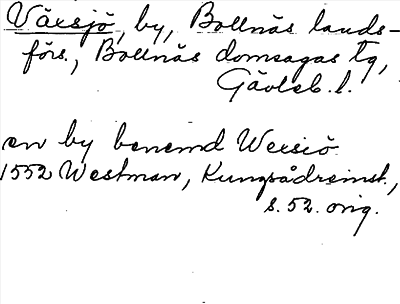 Växsjö, by, Bollnäs lands-
förs., Bollnäs domsagas tg,
Gävleb. l.
en by benemd Wexiö
1552 Westman, Kungsådreinst.,
s. 52. orig.